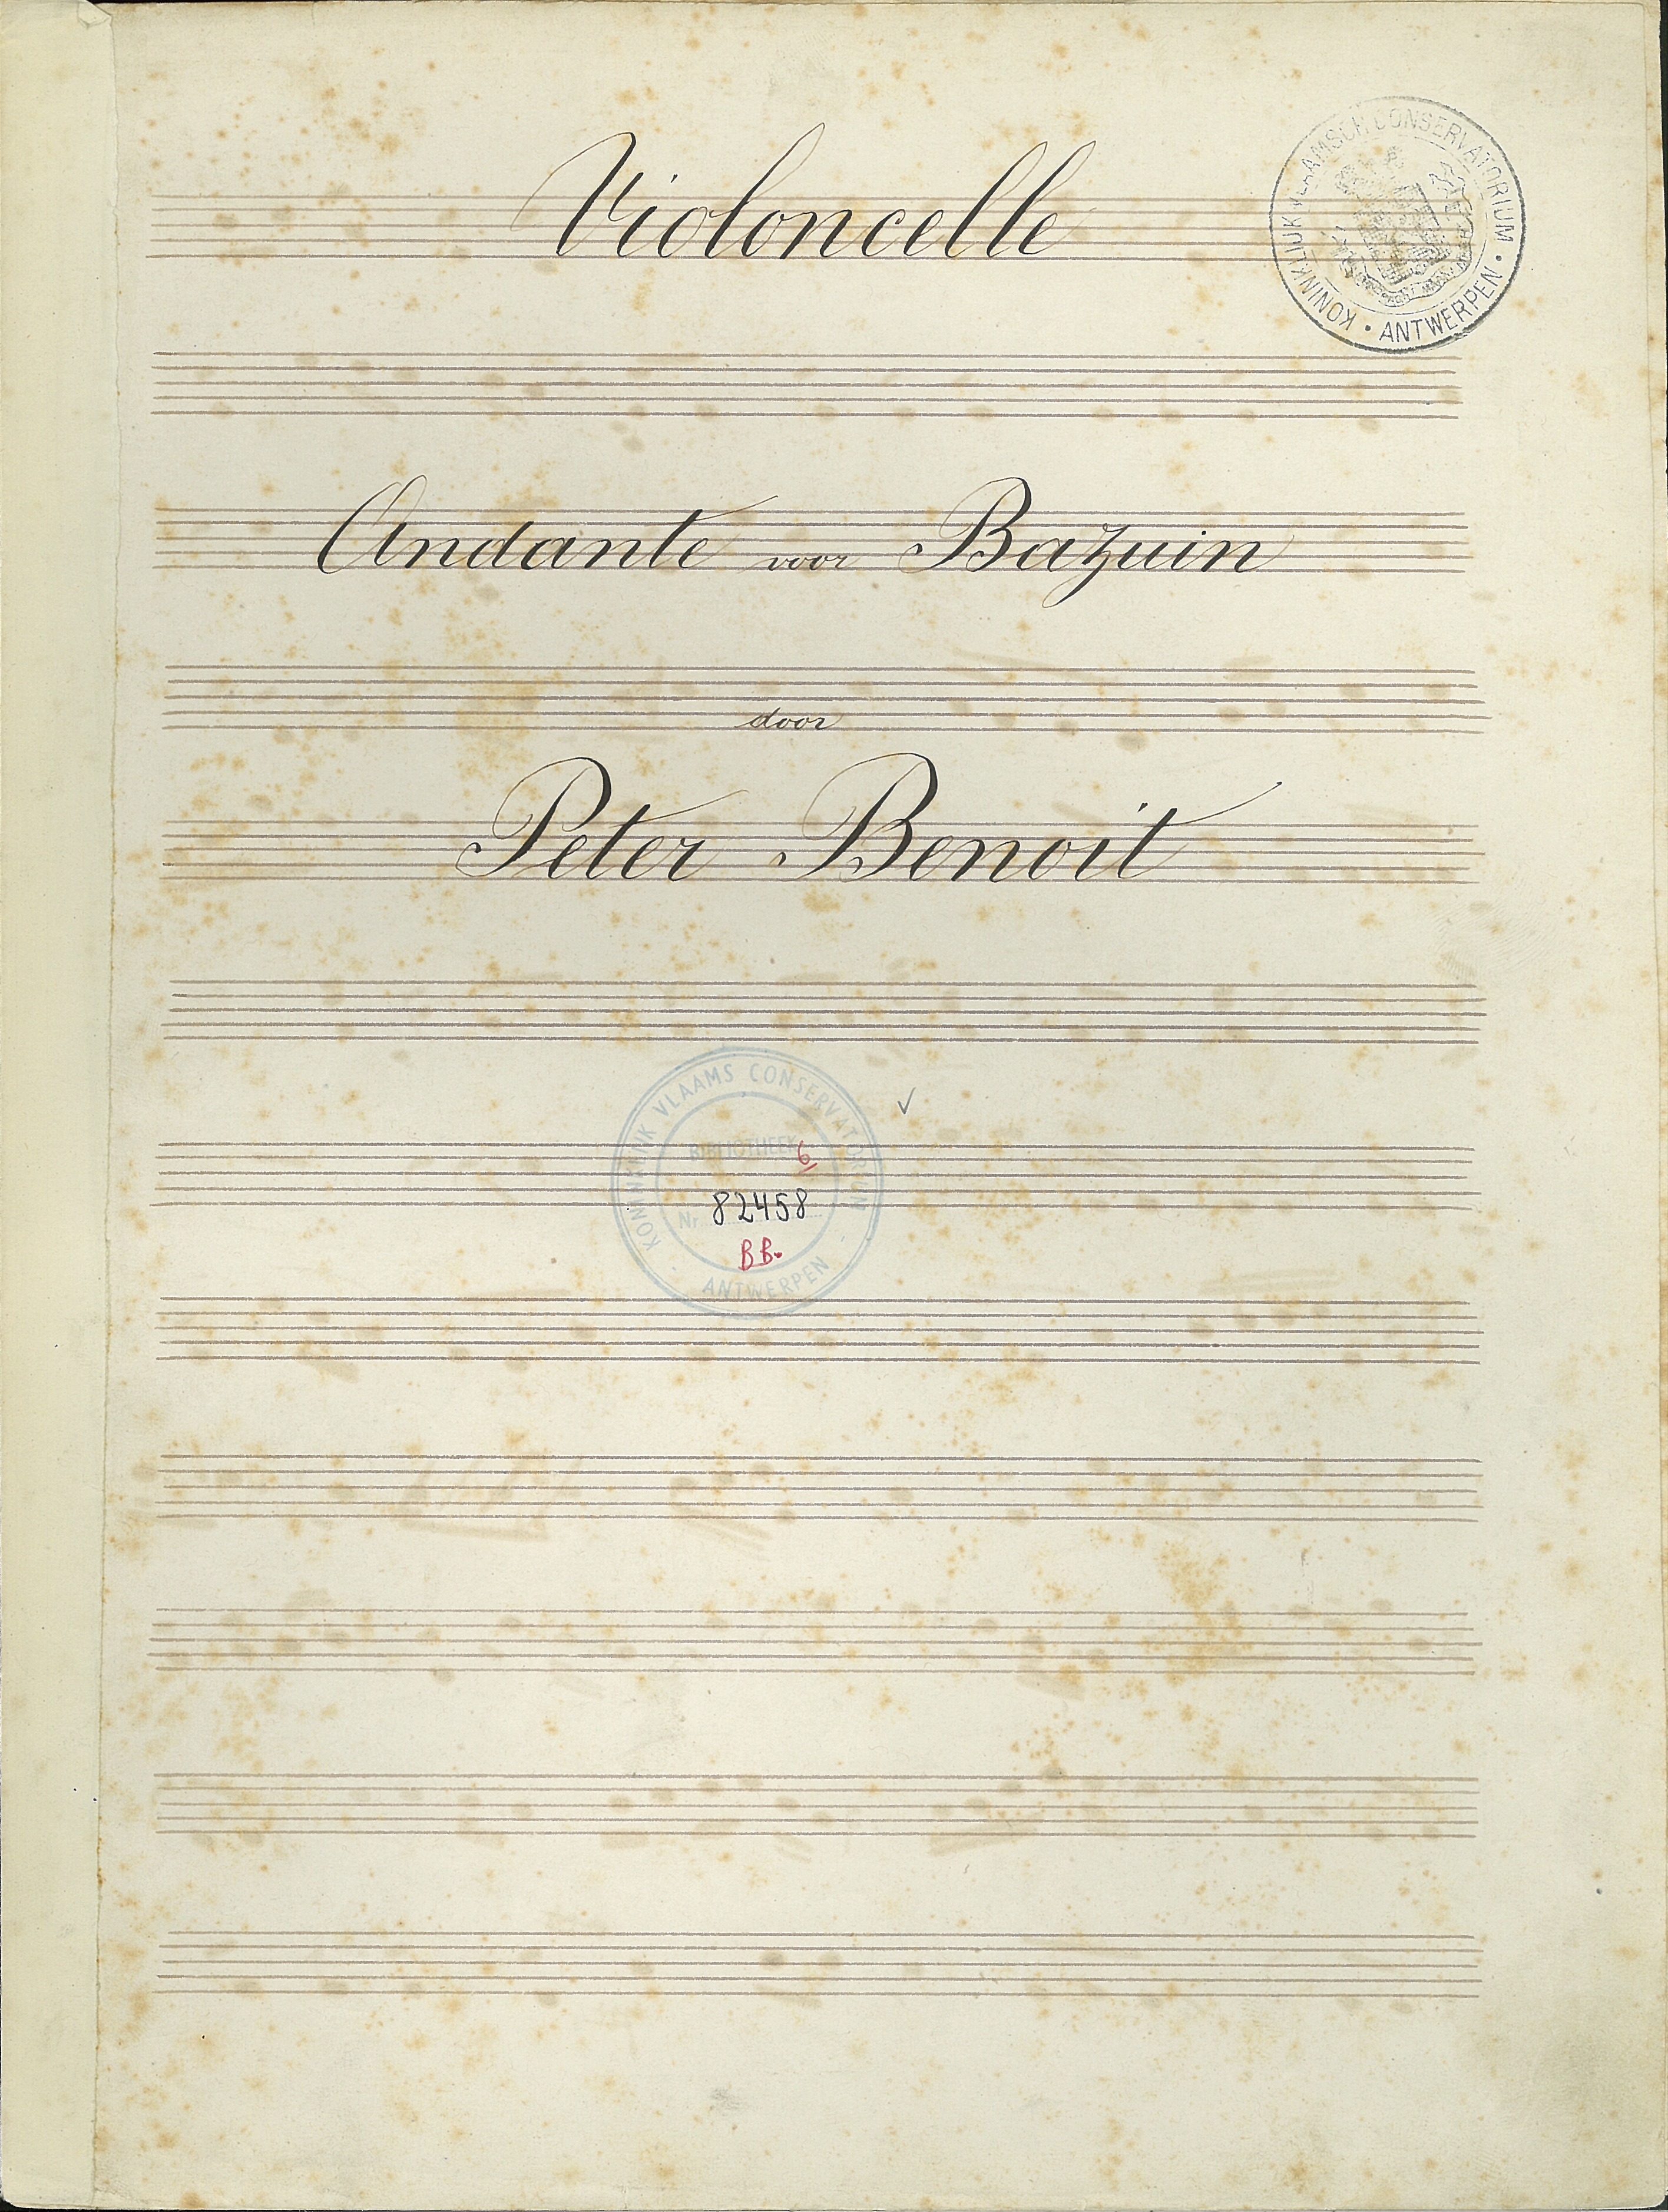 Violoncelle
KONINKLIJK VLAAMSCH CONSERVATORIUM • ANTWERPEN •
Andante voor Bazuin
door
Peter Benoit
KONINKLIJK VLAAMS CONSERVATORIUM - ANTWERPEN -
BIBLIOTHEEK 6
Nr 82458
BB.